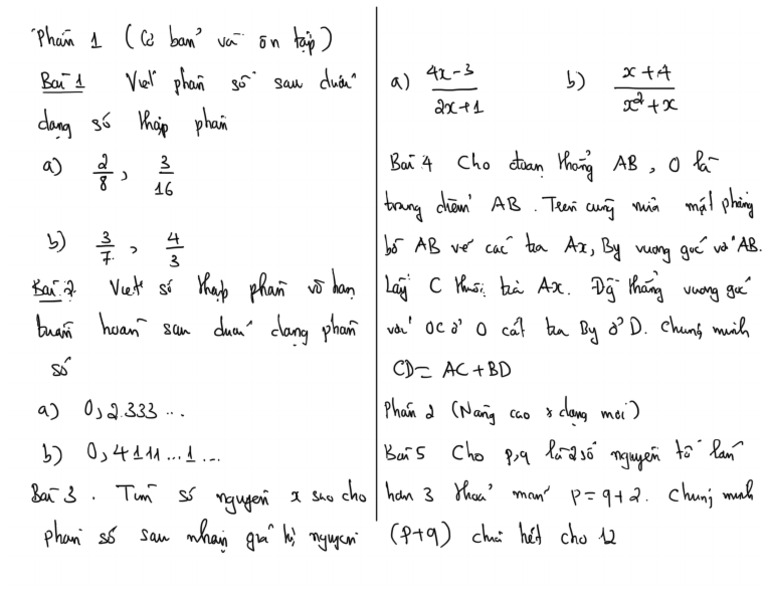 Phần 1 (Cơ bản và ôn tập)
Bài 1 Viết phân số sau dưới
dạng số thập phân
a) 2/8, 3/16
b) 3/7, 4/3
Bài 2 Viết số thập phân vô hạn
tuần hoàn sau dưới dạng phân
số
a) 0,2333...
b) 0,4111...1...
Bài 3. Tìm số nguyên x sao cho
phân số sau nhận giá trị nguyên
a) (4x-3)/(2x+1) b) (x+4)/(x²+x)
Bài 4 Cho đoạn thẳng AB, O là
trung điểm AB. Trên cùng nửa mặt phẳng
bờ AB vẽ các tia Ax, By vuông góc với AB.
Lấy C thuộc tia Ax. Đg thẳng vuông góc
với OC ở O cắt tia By ở D. Chứng minh
CD = AC + BD
Phần 2 (Nâng cao & dạng mới)
Bài 5 Cho p,q là 2 số nguyên tố lớn
hơn 3 thoả mãn p = q + 2. Chứng minh
(p+q) chia hết cho 12